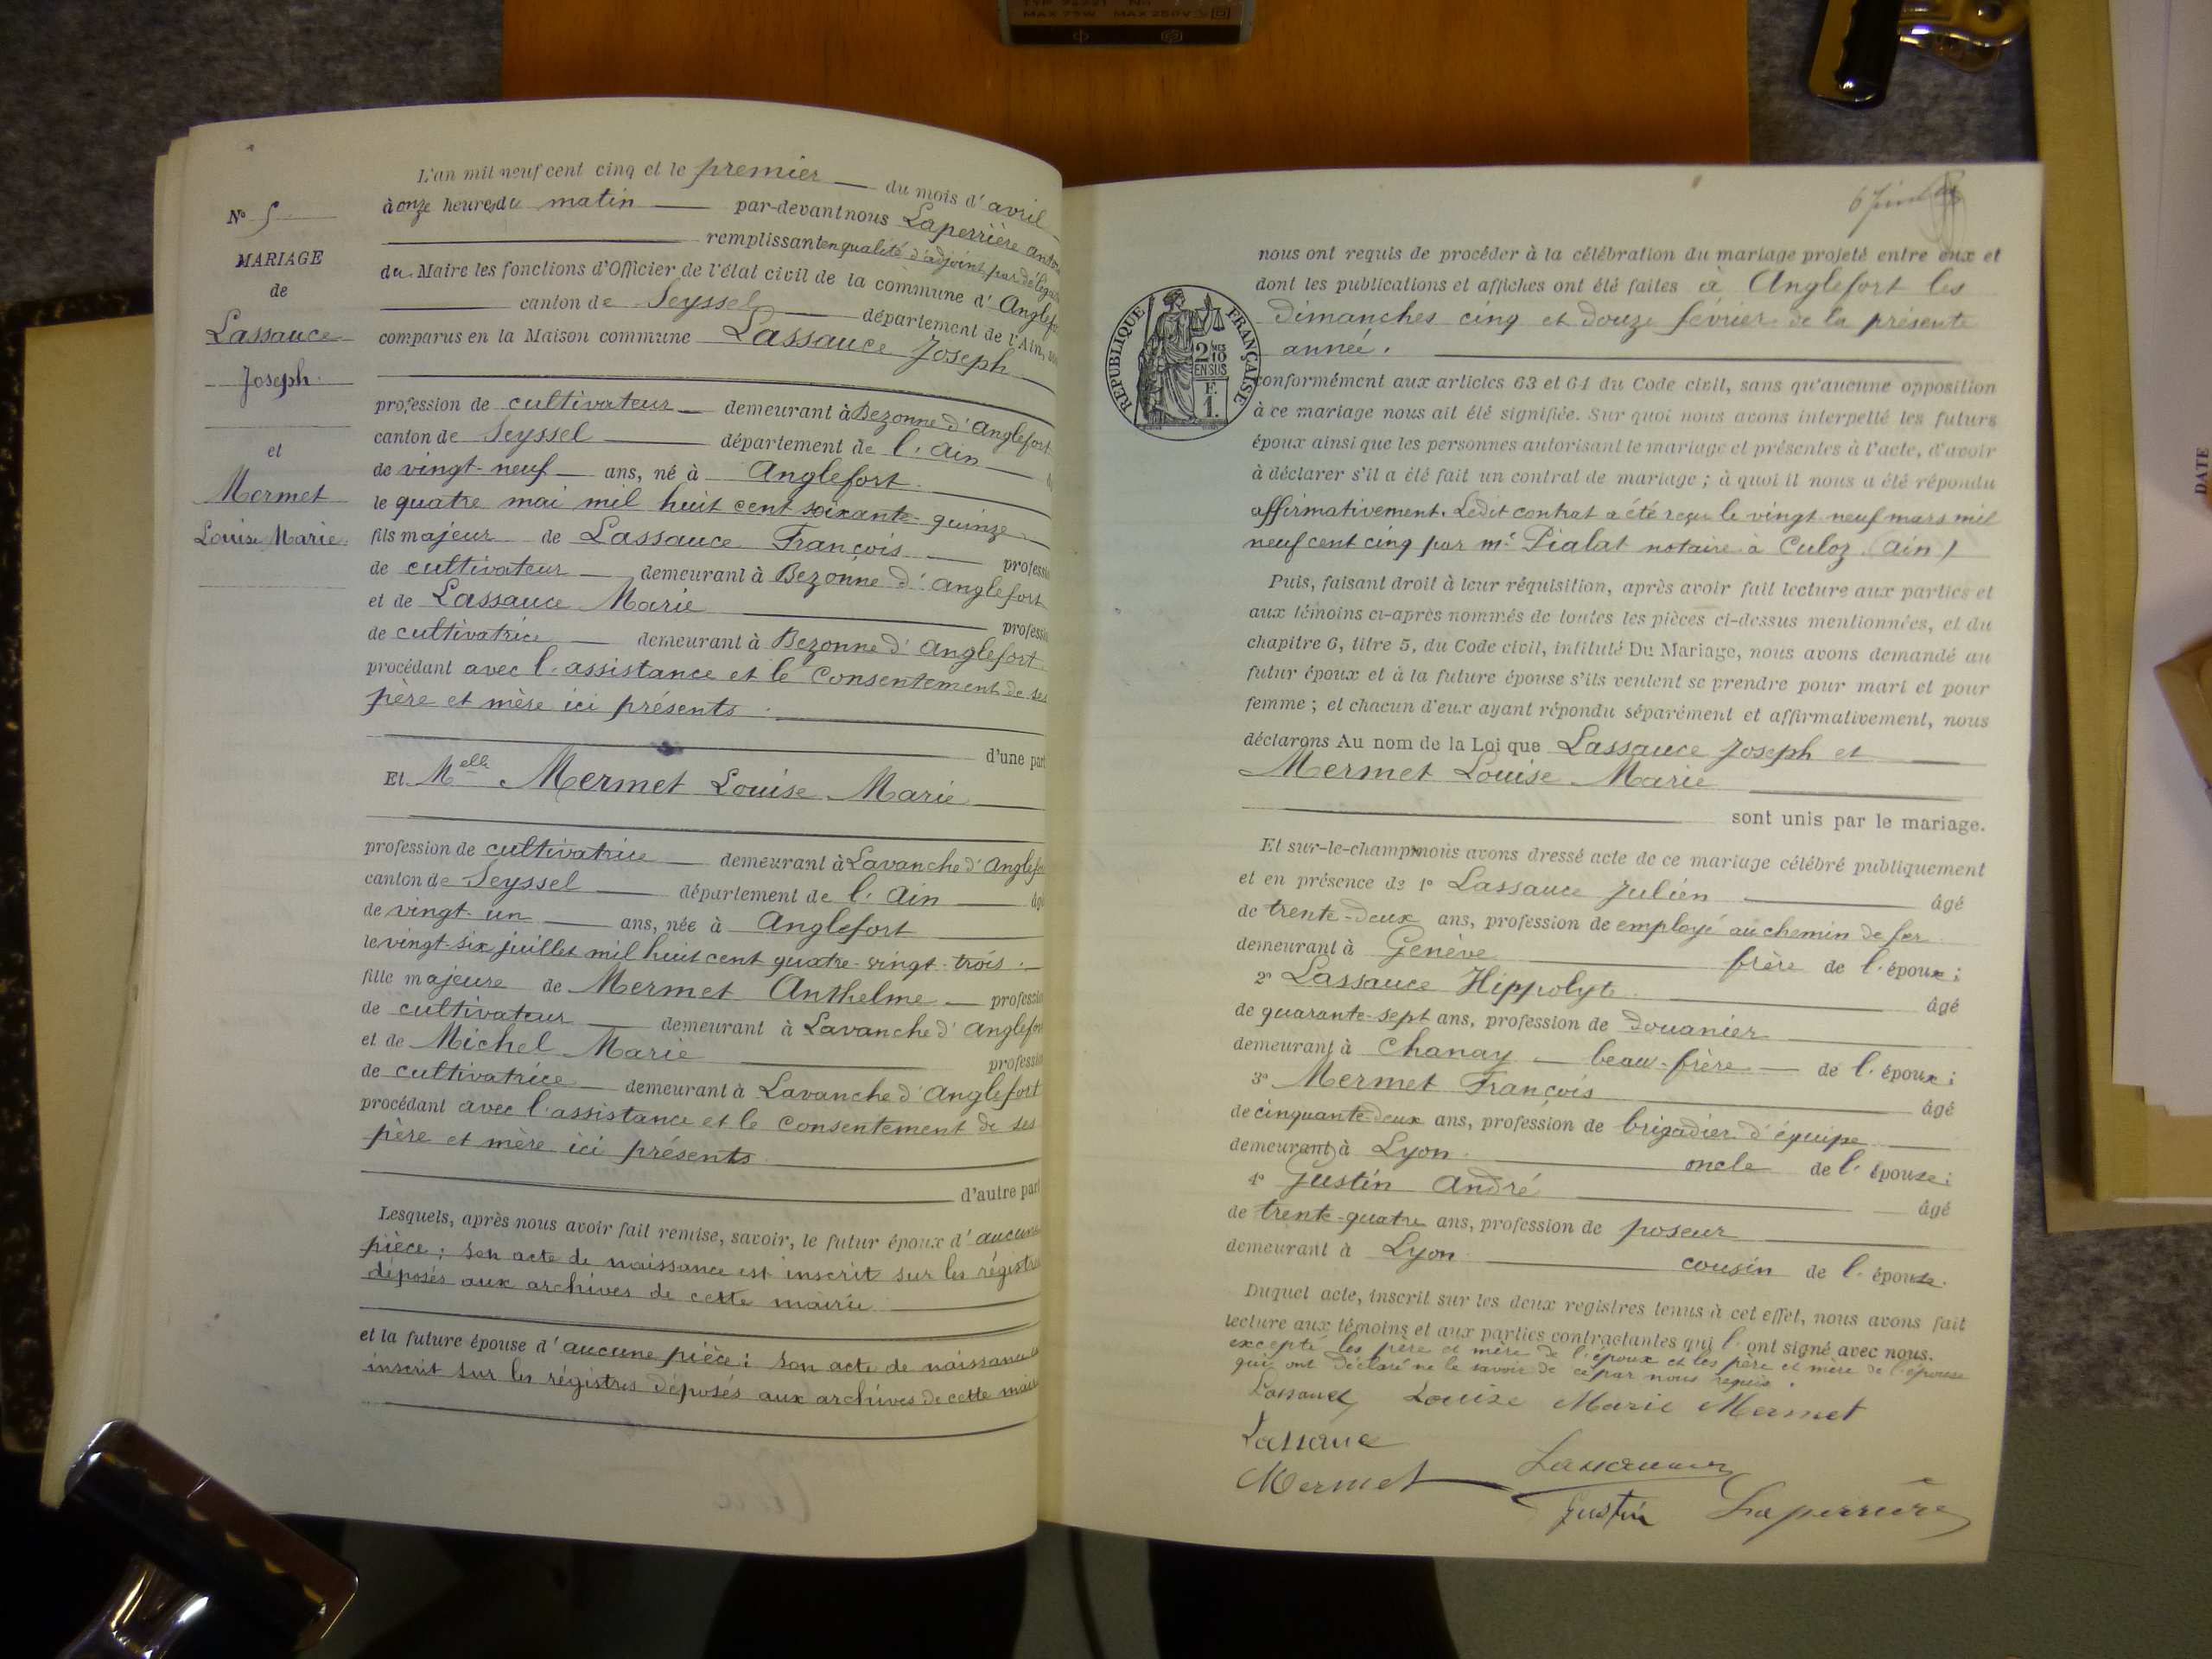 N° 5
MARIAGE
de
Lassauce
Joseph
et
Mermet
Louise Marie
L'an mil neuf cent cinq et le premier du mois d'avril
à onze heures du matin par-devant nous Laperrière
remplissant en qualité d'adjoint, par
du Maire les fonctions d'Officier de l'état civil de la commune d'
canton de Seyssel département de l'Ain,
comparus en la Maison commune Lassauce Joseph
profession de cultivateur demeurant à Bezonne d'Anglefort
canton de Seyssel département de l'Ain
de vingt-neuf ans, né à Anglefort
le quatre mai mil huit cent soixante-quinze
fils majeur de Lassauce François
de cultivateur demeurant à Bezonne d'Anglefort
et de Lassauce Marie
de cultivatrice demeurant à Bezonne d'Anglefort
procédant avec l'assistance et le consentement de ses
père et mère ici présents.
d'une part
Et Melle Mermet Louise Marie
profession de cultivatrice demeurant à Lavanche d'
canton de Seyssel département de l'Ain
de vingt-un ans, née à Anglefort
le vingt-six juillet mil huit cent quatre-vingt-trois.
fille majeure de Mermet Anthelme
de cultivateur demeurant à Lavanche d'
et de Michel Marie
de cultivatrice demeurant à Lavanche d'Anglefort
procédant avec l'assistance et le consentement de ses
père et mère ici présents
d'autre part
Lesquels, après nous avoir fait remise, savoir, le futur époux d'
pièce : son acte de naissance est inscrit sur les
déposés aux archives de cette mairie
et la future épouse d'aucune pièce : son acte de naissance
inscrit sur les régistres déposés aux archives de cette
nous ont requis de procéder à la célébration du mariage projeté entre eux et
dont les publications et affiches ont été faites à Anglefort les
dimanches cinq et douze février de la présente
année.
RÉPUBLIQUE FRANÇAISE
2/10
EN SUS
F.
1.
conformément aux articles 63 et 64 du Code civil, sans qu'aucune opposition
à ce mariage nous ait été signifiée. Sur quoi nous avons interpellé les futurs
époux ainsi que les personnes autorisant le mariage et présentes à l'acte, d'avoir
à déclarer s'il a été fait un contrat de mariage ; à quoi il nous a été répondu
affirmativement. Ledit contrat a été reçu le vingt neuf mars mil
neuf cent cinq par me Pialat notaire à Culoz (Ain)
Puis, faisant droit à leur réquisition, après avoir fait lecture aux parties et
aux témoins ci-après nommés de toutes les pièces ci-dessus mentionnées, et du
chapitre 6, titre 5, du Code civil, intitulé Du Mariage, nous avons demandé au
futur époux et à la future épouse s'ils veulent se prendre pour mari et pour
femme ; et chacun d'eux ayant répondu séparément et affirmativement, nous
déclarons Au nom de la Loi que Lassauce Joseph et
Mermet Louise Marie
sont unis par le mariage.
Et sur-le-champ nous avons dressé acte de ce mariage célébré publiquement
et en présence de 1° Lassauce Julien âgé
de trente-deux ans, profession de employé au chemin de fer
demeurant à Genève frère de l'époux ;
2° Lassauce Hippolyte âgé
de quarante-sept ans, profession de douanier
demeurant à Chanay beau-frère de l'époux ;
3° Mermet François âgé
de cinquante-deux ans, profession de brigadier d'équipe
demeurant à Lyon oncle de l'épouse ;
4° Gustin André âgé
de trente-quatre ans, profession de poseur
demeurant à Lyon cousin de l'épouse.
Duquel acte, inscrit sur les deux registres tenus à cet effet, nous avons fait
lecture aux témoins et aux parties contractantes qui l'ont signé avec nous.
excepté les père et mère de l'époux et les père et mère de l'épouse
qui ont déclaré ne le savoir de ce par nous requis.
Lassauce Louise Marie Mermet
Lassauce
Mermet Lassauce
Gustin Laperrière
DATE